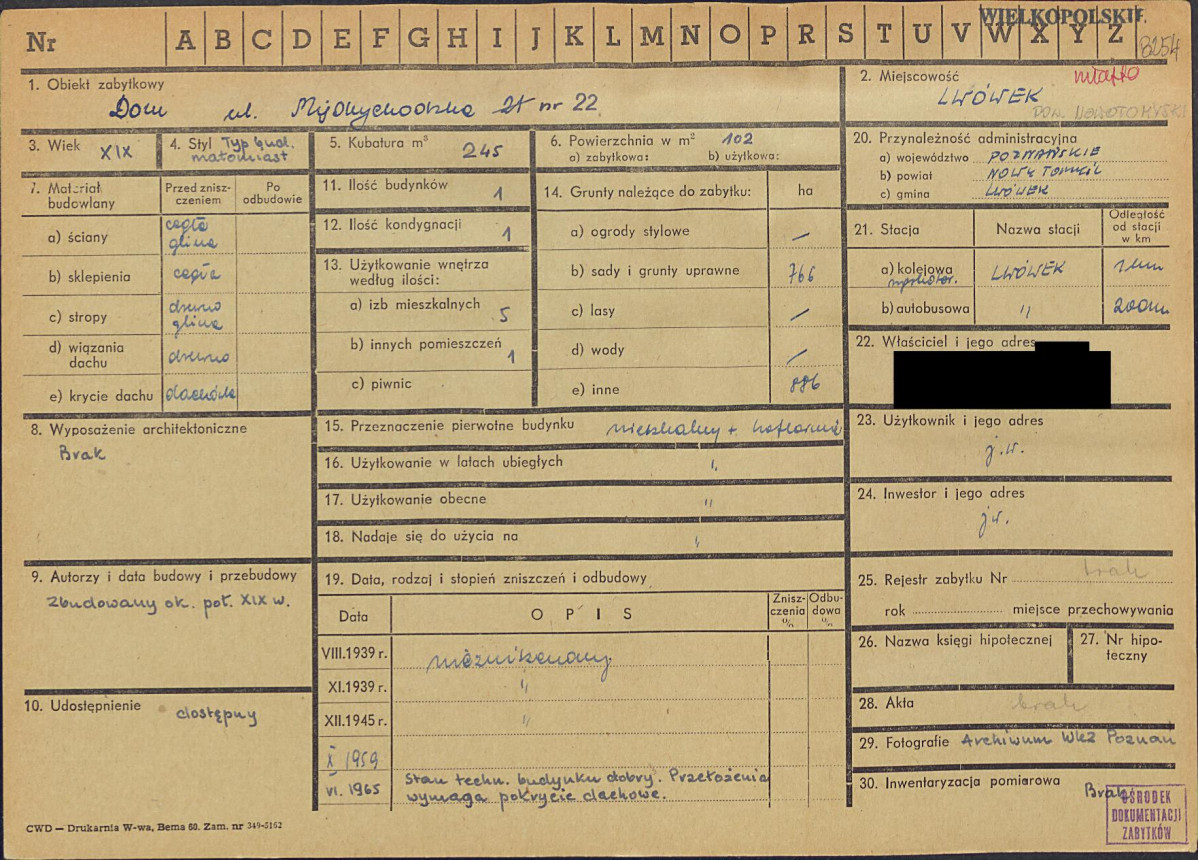 WIELKOPOLSKIE
Nr A B C D E F G H I J K L M N O P R S T U V W X Y Z
8254
1. Obiekt zabytkowy
Dom ul. nr 22
2. Miejscowość
miasto
LWÓWEK
POW. NOWOTOMYSKI
3. Wiek XIX
4. Styl Typ bud.
małomiast
5. Kubatura m³ 245
6. Powierzchnia w m² 102
a) zabytkowa: b) użytkowa:
20. Przynależność administracyjna
a) województwo POZNAŃSKIE
b) powiat NOWY TOMYŚL
c) gmina LWÓWEK
7. Materiał budowlany
Przed znisz-
czeniem
Po
odbudowie
a) ściany cegła
glina
b) sklepienia cegła
c) stropy drewno
glina
d) wiązania
dachu drewno
e) krycie dachu dachówka
11. Ilość budynków 1
12. Ilość kondygnacji 1
13. Użytkowanie wnętrza
według ilości:
a) izb mieszkalnych 5
b) innych pomieszczeń 1
c) piwnic
14. Grunty należące do zabytku: ha
a) ogrody stylowe —
b) sady i grunty uprawne 766
c) lasy —
d) wody —
e) inne 886
21. Stacja Nazwa stacji Odległość
od stacji
w km
a) kolejowa LWÓWEK 1 km
b) autobusowa " 200m
22. Właściciel i jego adres
8. Wyposażenie architektoniczne
Brak
15. Przeznaczenie pierwotne budynku mieszkalny +
16. Użytkowanie w latach ubiegłych "
17. Użytkowanie obecne "
18. Nadaje się do użycia na "
23. Użytkownik i jego adres
j.w.
24. Inwestor i jego adres
jw.
9. Autorzy i data budowy i przebudowy
Zbudowany ok. poł. XIX w.
19. Data, rodzaj i stopień zniszczeń i odbudowy
Data O P I S Znisz-
czenia
% Odbu-
dowa
%
VIII.1939 r. niezniszczony
XI.1939 r. "
XII.1945 r. "
X 1959
VI. 1965 Stan techn. budynku dobry. Przełożenia
wymaga pokrycie dachowe.
25. Rejestr zabytku Nr brak
rok miejsce przechowywania
26. Nazwa księgi hipotecznej
27. Nr hipo-
teczny
10. Udostępnienie
dostępny
28. Akta brak
29. Fotografie Archiwum WKZ Poznań
30. Inwentaryzacja pomiarowa
Brak
OŚRODEK
DOKUMENTACJI
ZABYTKÓW
CWD — Drukarnia W-wa, Bema 60. Zam. nr 349-5162